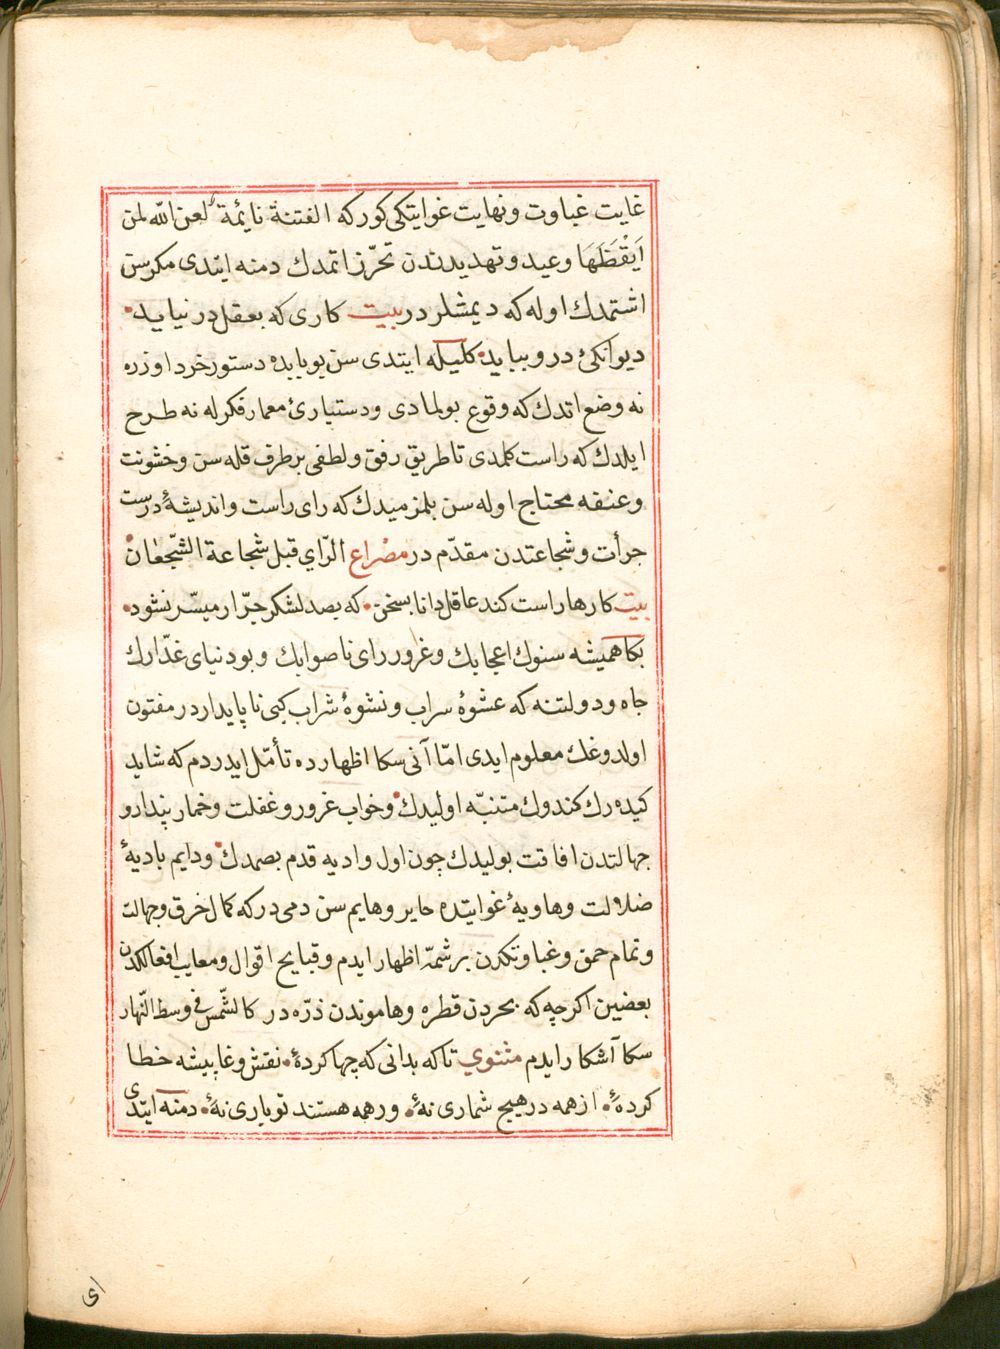 غایت غباوت و نهایت غوایتكی كور كه الفتنة نایمة لعن الله لمن
اَیْقَظَهَا وعید و تهدیدندن تحرّز اتمدك دمنه ایتدی مكر سن
اشتمدك اوله كه دیمشلر در بیت كاری كه بعقل در نیاید
دیوانكیٔ درو بباید كلیله ایتدی سن بو بابده دستور خرد اوزره
نه وضع اتدك كه وقوع بولمادی و دستیاریٔ معمار فكرله نه طرح
ایلدك كه راست كلمدی تا طریق رفق و لطفی بر طرف قله سن و خشونت
و عنفه محتاج اوله سن بلمز میدك كه رای راست و اندیشهٔ درست
جرأت و شجاعتدن مقدّم در مصراع الرّای قبل شجاعة الشّجعان
بیت كارها راست كند عاقل دانا بسخن كه بصد لشكر جرّار میسّر نشود
بكا همیشه سنوك اعجابك و غرور رای ناصوابك و بو دنیای غدّارك
جاه و دولتنه كه عشوهٔ سراب و نشوهٔ شراب كبی ناپایدار در مفتون
اولدوغك معلوم ایدی امّا آنی سكا اظهارده تأمّل ایدردم كه شاید
كیده رك كندوك متنبّه اولیدك و خواب غرور و غفلت و خمار پندار و
جهالتدن افاقت بولیدك چون اول وادیه قدم بصمدك و دایم بادیهٔ
ضلالت و هاویهٔ غوایتده حایر و هایم سن دمی در كه كمال خرق و جهالت
و تمام حمق و غباوتكدن بر شمّه اظهار ایدم و قبایح اقوال و معایب افعالكدن
بعضین اكرچه كه بحردن قطره و هاموندن ذرّه در كالشّمس فی وسط النّهار
سكا آشكارا ایدم مثنوی تا كه بدانی كه چها كردهٔ نقش وغا پیشه خطا
كردهٔ از همه در هیچ شماری نهٔ ور همه هستند تو باری نهٔ دمنه ایتدی
ای